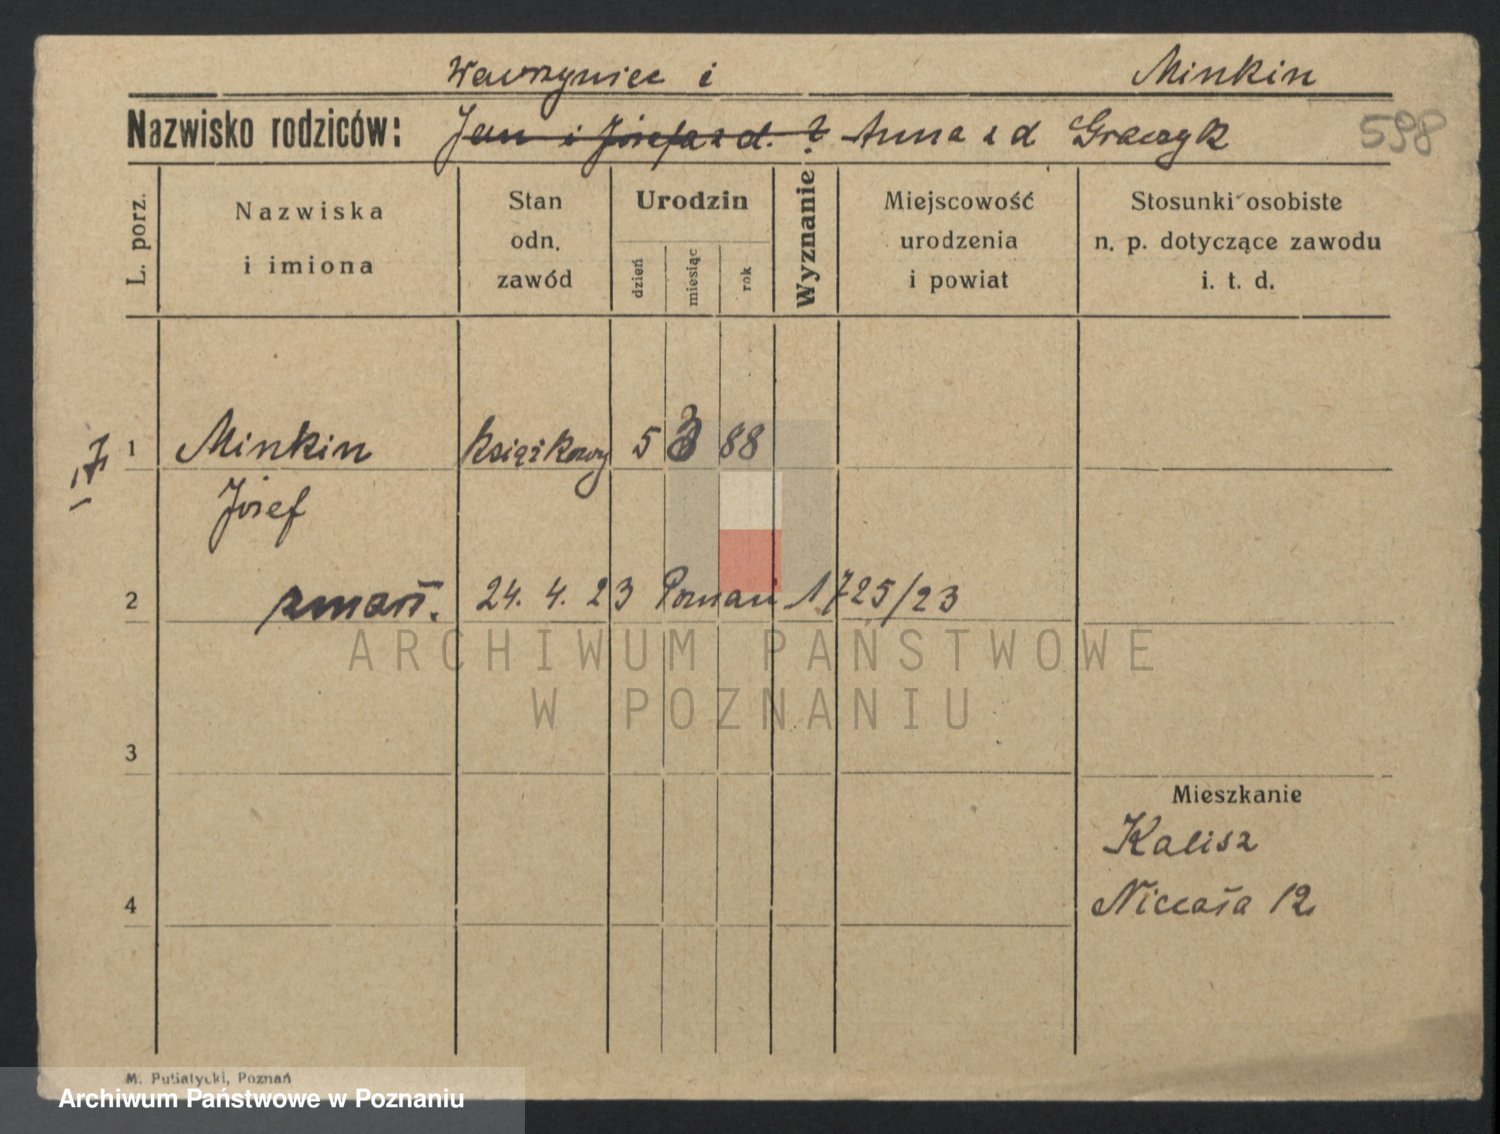 Wawrzyniec i Minkin
Nazwisko rodziców: Jan i Józefa z d. ? Anna z d Graczyk
598
L. porz.
Nazwiska
i imiona
Stan
odn.
zawód
Urodzin
dzień
miesiąc
rok
Wyznanie
Miejscowość
urodzenia
i powiat
Stosunki osobiste
n. p. dotyczące zawodu
i. t. d.
1 Minkin książkowy 5 3 88
Józef
2 zmarł. 24. 4. 23 Poznań 1725/23
ARCHIWUM PAŃSTWOWE
W POZNANIU
3
Mieszkanie
Kalisz
4 12
M. Putiatycki, Poznań
Archiwum Państwowe w Poznaniu